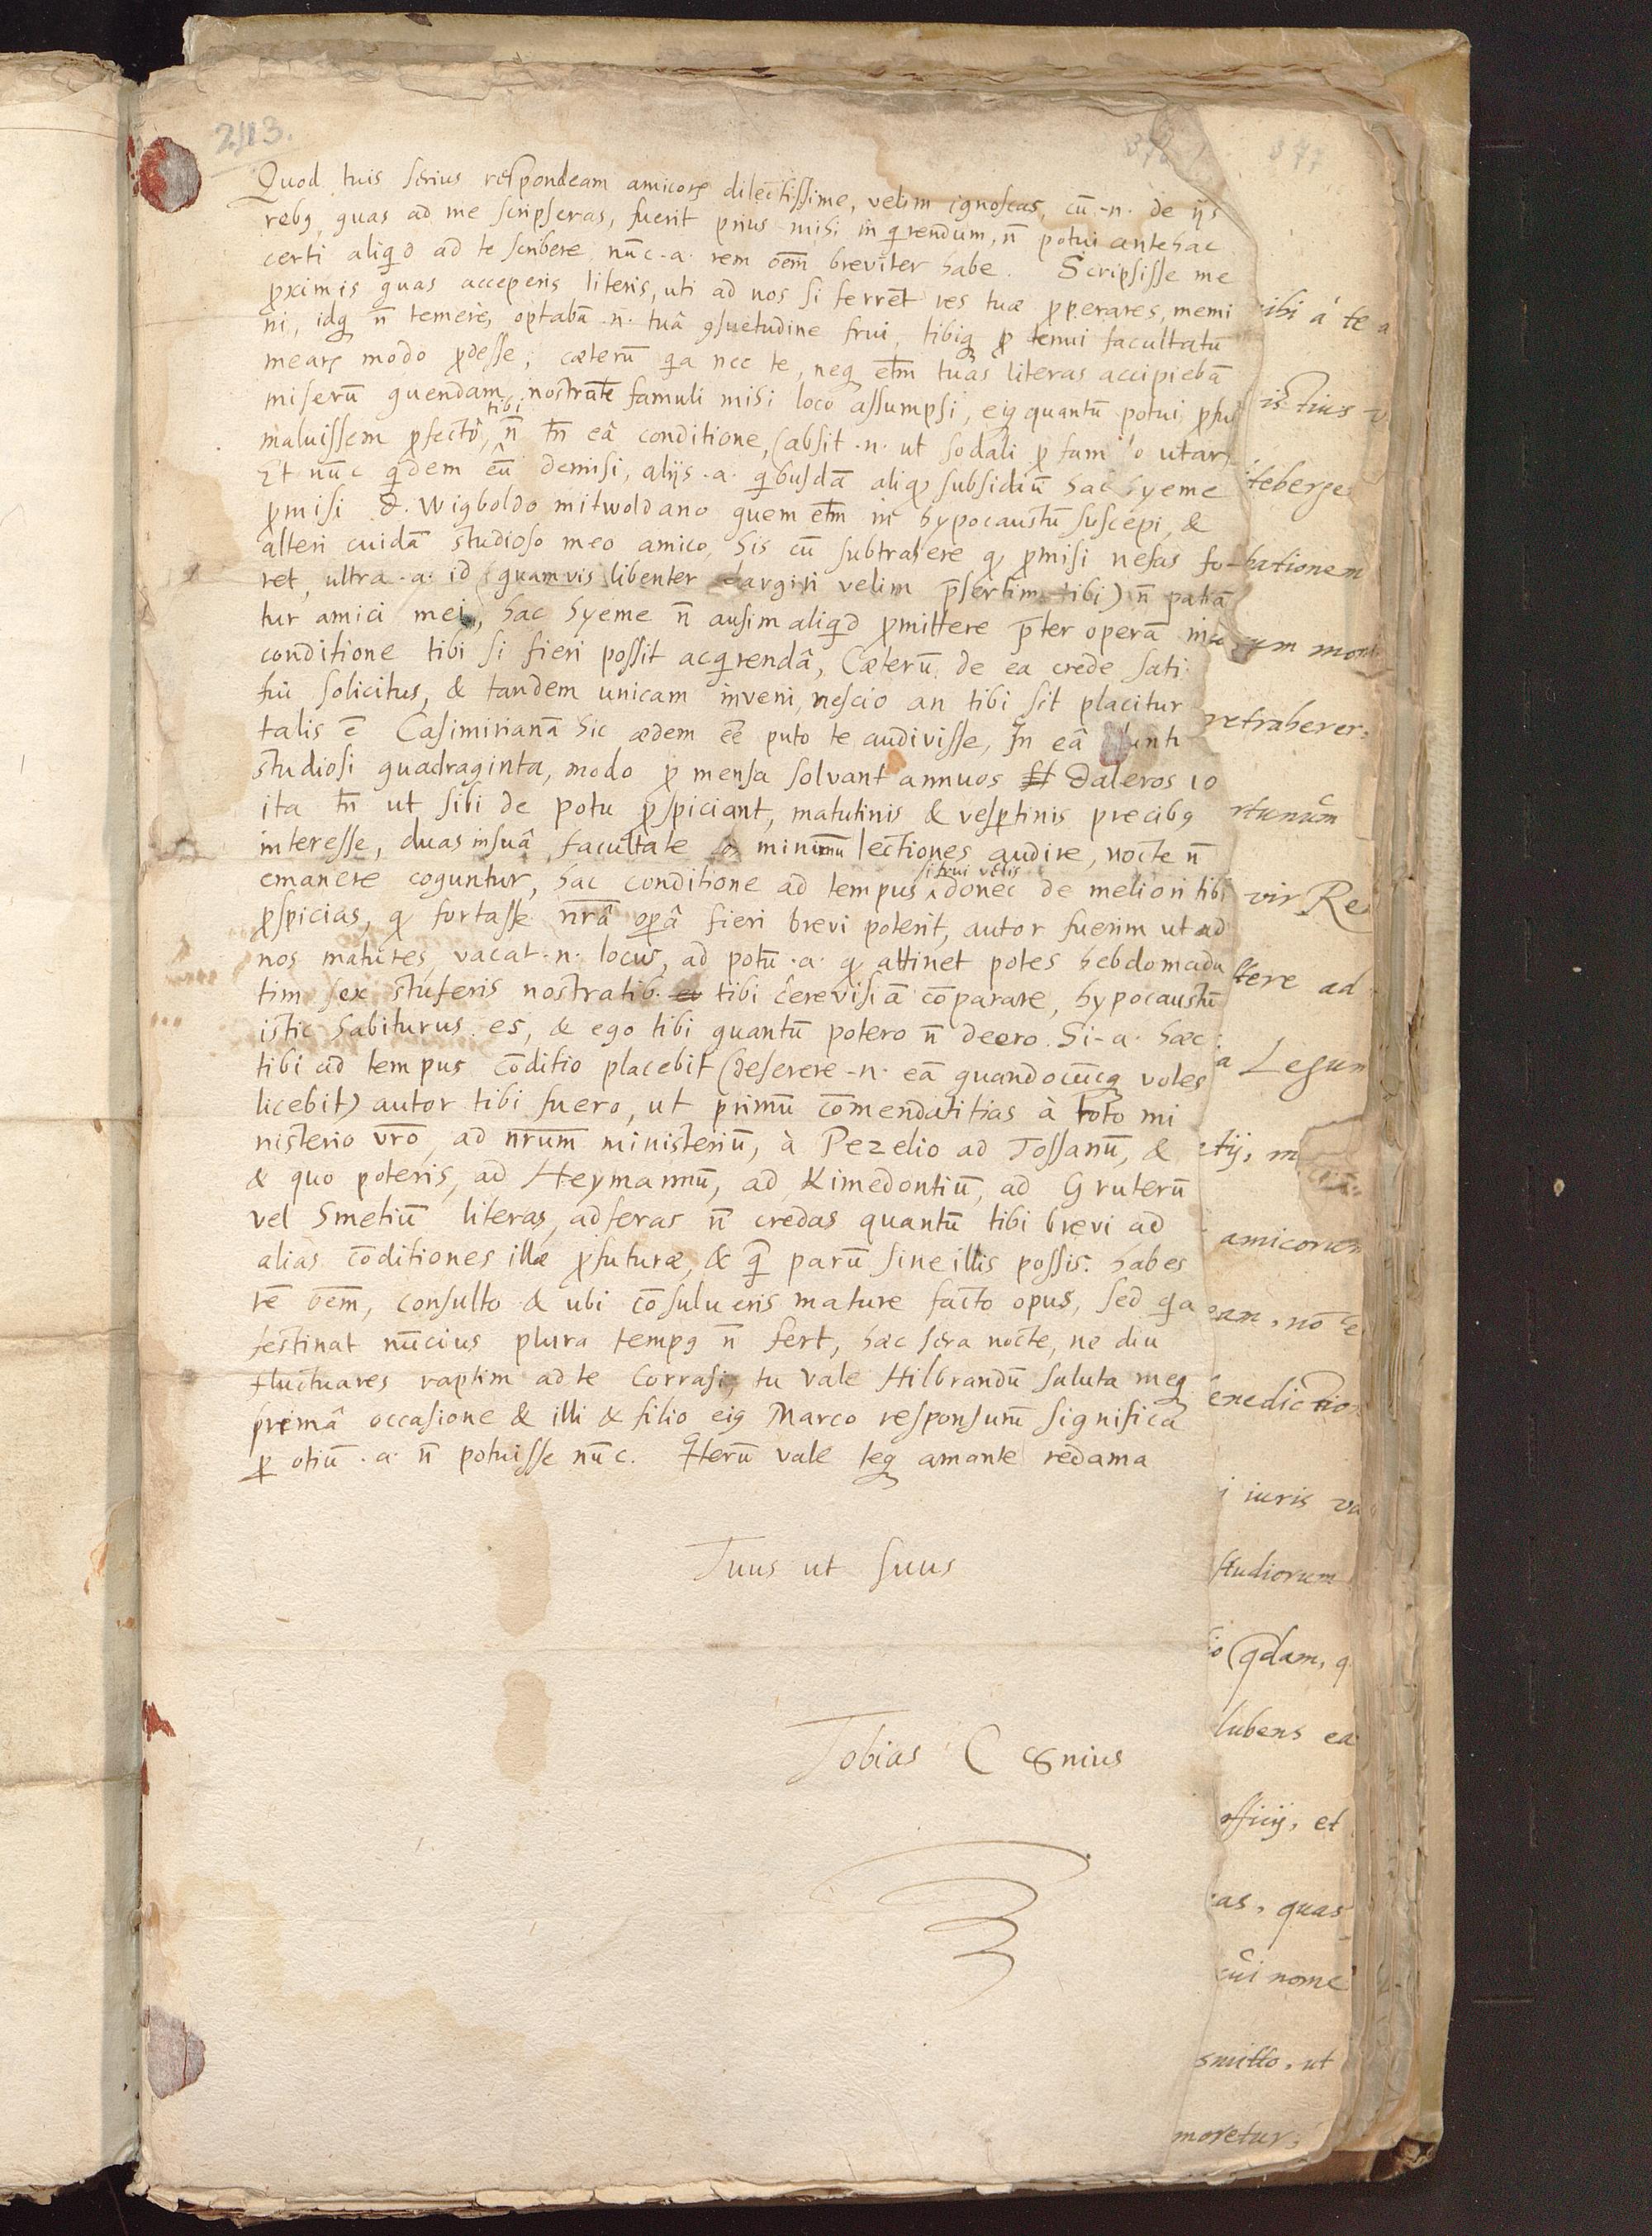 243.
376 377
Quod tuis serius respondeam amicorꝝ dilectissime, velim ignoscas, cū .n. de ijs
rebꝰ, quas ad me scripseras, fuerit prius mihi inqrendum, n̄ potui antehac
certi aliqd ad te scribere, nūc .a. rem oēm breviter habe. Scripsisse me
ꝓximis quas acceperis literis, uti ad nos si ferret res tuæ ꝓperares, memi
ni, idqꝫ n̄ temere, optabā .n. tuâ ꝯsuetudine frui, tibiqꝫ ꝓ tenui facultatū
mearꝝ modo ꝓdesse, cæterū qa nec te, neqꝫ etm̄ tuas literas accipiebā
miserū quendam nostratē famuli mihi loco assumpsi, eiqꝫ quantū potui ꝓfui
maluissem ꝓfectò, tibi n̄ tn̄ eâ conditione, (absit .n. ut sodali ꝓ famulo utar)
Et nūc qdem eū demisi, alijs .a. qbusdā aliqd subsidiū hac hyeme
ꝓmisi D. Wigboldo mitwoldano quem etm̄ in hypocaustū suscepi, &
alteri cuidā studioso meo amico, his cū subtrahere qd ꝓmisi nefas fo-
ret, ultra .a. id (quamvis libenter largiri velim p̄sertim tibi) n̄ patiā
tur amici mei, hac hyeme n̄ ausim aliqd ꝓmittere p̄ter operā
conditione tibi si fieri possit acqrendâ, Cæterū de ea crede sati
fui solicitus, & tandem unicam inveni, nescio an tibi sit placitur
talis ē Casimirianā hic ædem eē puto te audivisse, In eâ
studiosi quadraginta, modo ꝓ mensa solvant annuos daleros 10
ita tn̄ ut sibi de potu ꝓspiciant, matutinis & vespertinis precibꝰ
interesse, duas in suâ facultate minimū lectiones audire, nocte n̄
emanere coguntur, hac conditione ad tempus si frui velis donec de meliori tibi
ꝓspicias, qd fortasse nr̄â operâ fieri brevi poterit, autor fuerim ut ad
nos matures, vacat .n. locus, ad potū .a. qd attinet potes hebdomada
tim sex stuferis nostratib. tibi cerevisiā cōparare, hypocaustū
istic habiturus es, & ego tibi quantū potero n̄ deero. Si .a. hæc
tibi ad tempus cōditio placebit (deserere .n. eā quandocūqꝫ voles
licebit) autor tibi fuero, ut primū cōmendatitias à toto mi
nisterio vr̄o, ad nr̄um ministeriū, à Pezelio ad Tossanū, &
& quo poteris, ad Heymannū, ad Kimedontiū, ad Gruterū
vel Smetiū literas, adferas n̄ credas quantū tibi brevi ad
alias cōditiones illæ ꝓfuturæ, & q̄ parū sine illis possis: habes
rē oēm, consulto & ubi cōsulueris mature facto opus, sed qa
festinat nūcius plura tempꝰ n̄ fert, hæc sera nocte, ne diu
fluctuares raptim ad te corrasi, tu vale Hilbrandū saluta meqꝫ
primâ occasione & illi & filio eiꝰ Marco responsurū significa
ꝑ otiū .a. n̄ potuisse nūc. Iterū vale teqꝫ amantē redama
Tuus ut suus
Tobias
ibi à te a
teberge
bationem
retraherer
vir Re
tere ad
a Legum
amicorum
enedictio
i iuris va
studiorum
qdam, q
lubens ea
officij, et
as, quas
cui nomē
smitto, ut
moretur,